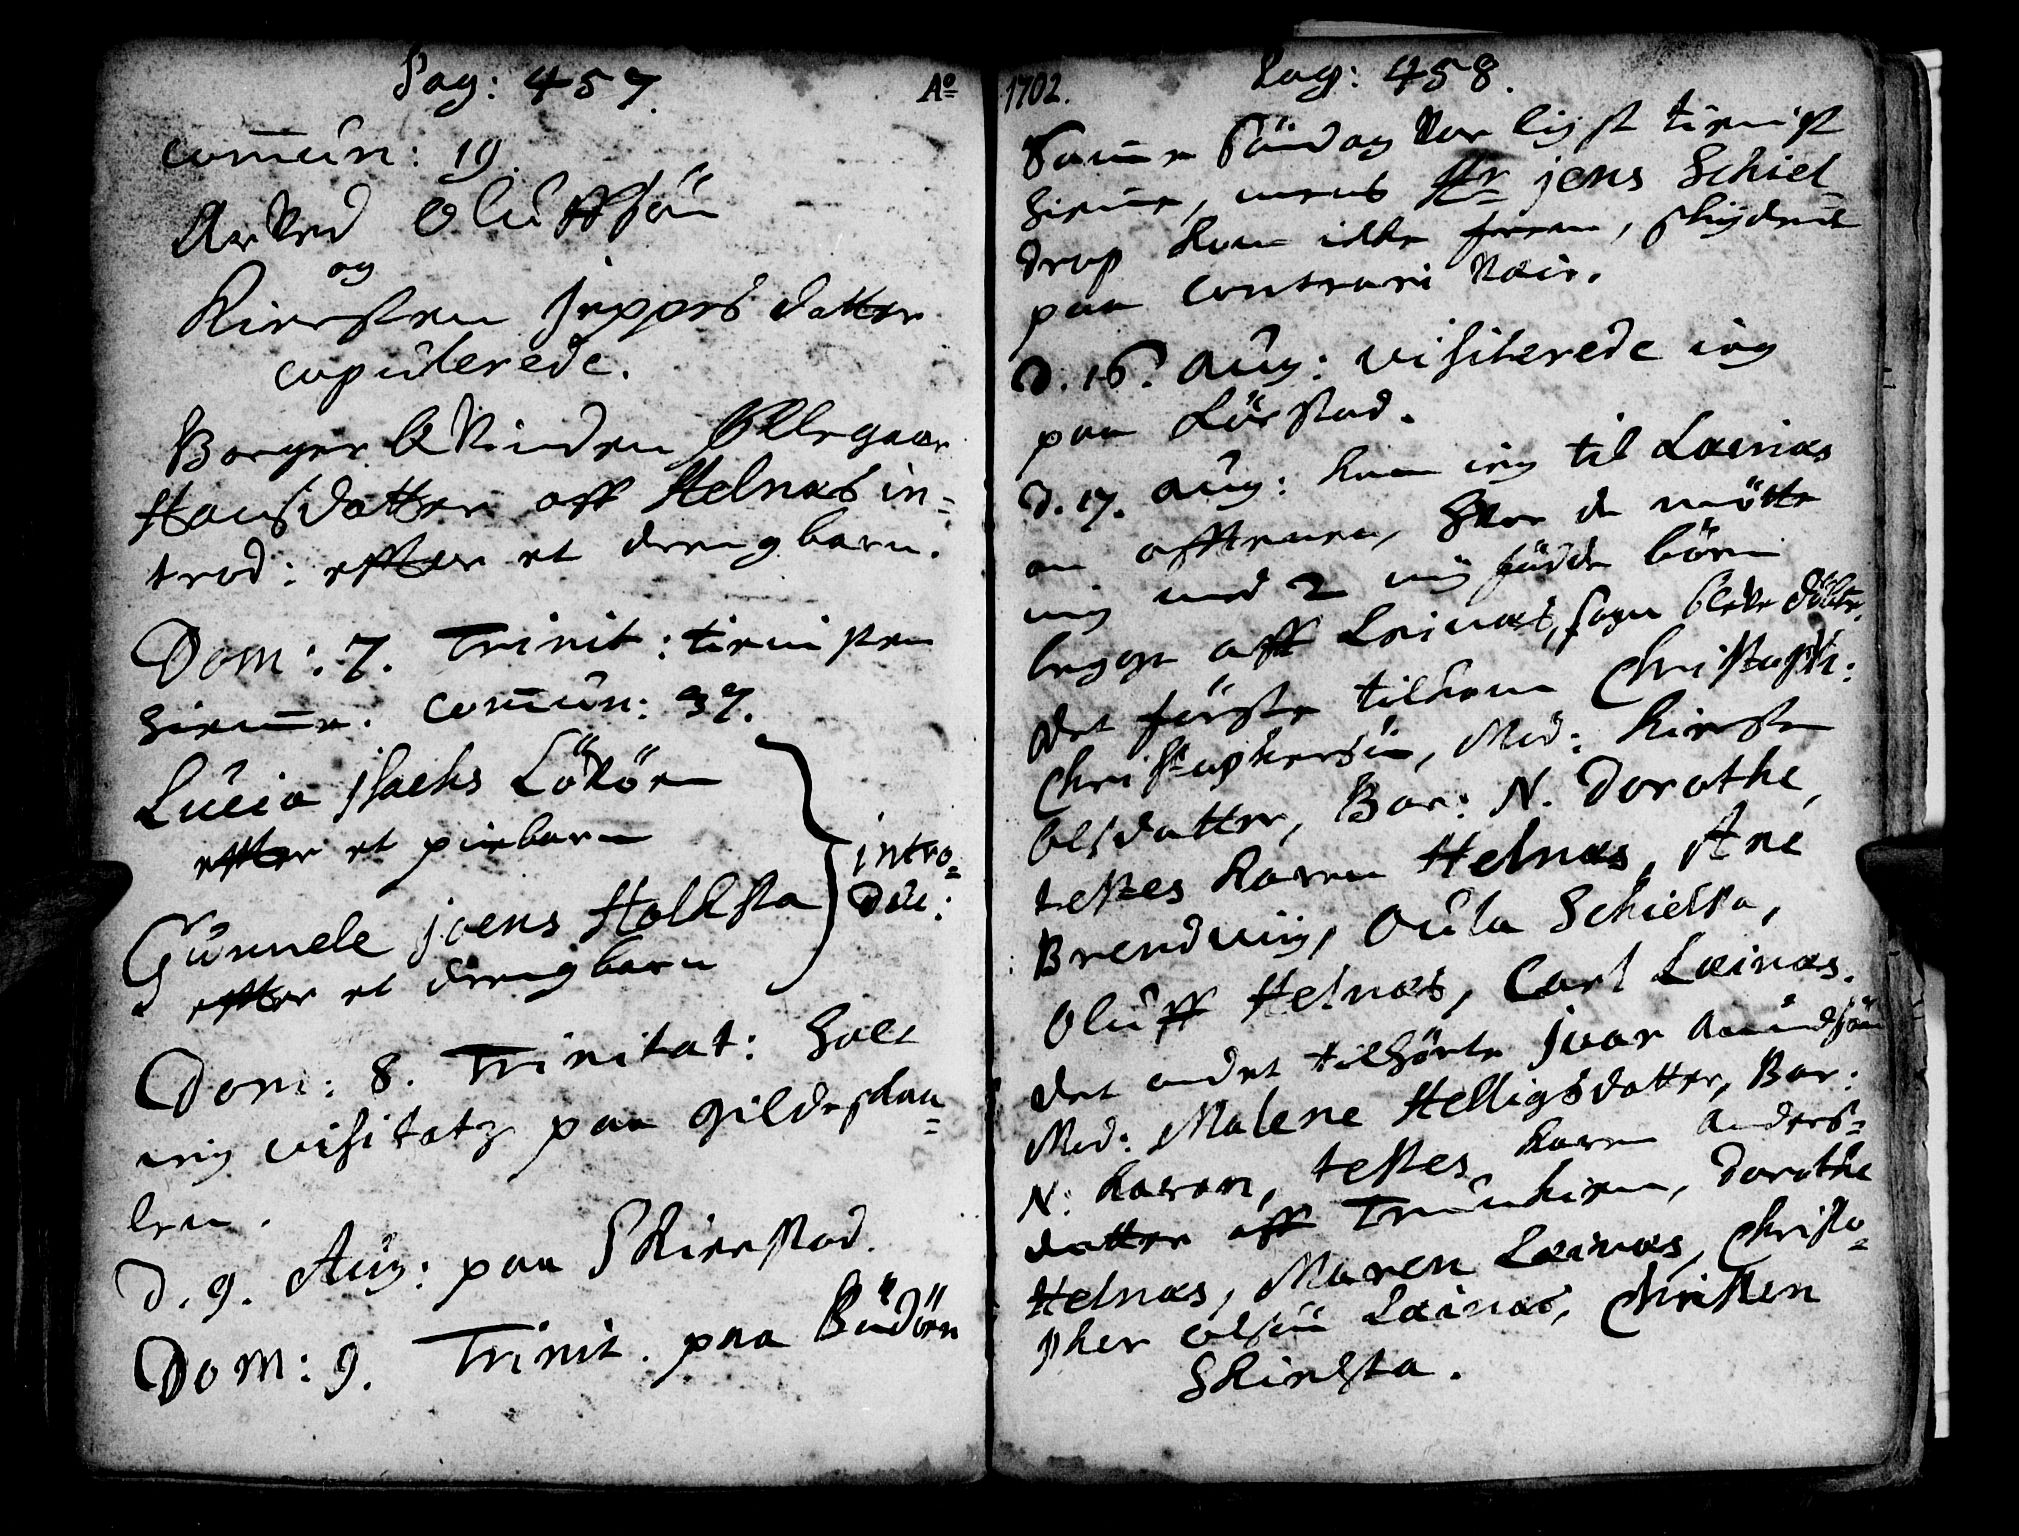 Pag: 457.
Ao
com̄ún: 19.
Arved Olúffsön
og
Kiersten Jeppesdatter
copúlerede.
Borger Qvinden Ellegaar
Hansdatter aff Helnæs in=
trod: effter et drengbarn.
Dom: 7. Trinit: tienisten
hiem̄e. com̄ún: 37.
Lúcia Isachs Lövöen
effter et piebarn
Gúnnele joens Holcksta
effter et drengbarn
intro=
dúc:
Dom: 8. Trinitat: holt
ieg visitatz paa Gildeskaa=
len.
D. 9. Aúg: paa Skierstad.
Dom: 9. Trinit. paa Búdöen
1702.
Pag: 458.
Sam̄e Söndag var liyst tienist
hiem̄e, mens Hr jens Schiel=
drup kom icke frem, skiydendt
paa contrari Veir.
D. 16. Aúg: visiterede ieg
paa Lörstad.
D. 17. Aúg: kom ieg til Læinæs
om afftenen, hvor de mötte
mig med 2 nÿ födde börn
begge aff Leinæs, som bleve döbte.
det förste tilkom Christoph:
Christophersön, Mod: Kiersten
Olsdatter, Bar: N. Dorothe,
testes Karen Helnæs, Ane
Brendviig, Oúla Schielsta,
Olúff Helnæs, Carl Læinæs.
det andet tilhörte Ivar Amúndsön
Mod: Malene Helligsdatter, Bar:
N: Karen, testes Karen Anders=
datter aff Trúnhiem, Dorothe
Helnæs, Maren Læinæs, Christo=
pher olsön Læinæs, Christen
Skirelsta.